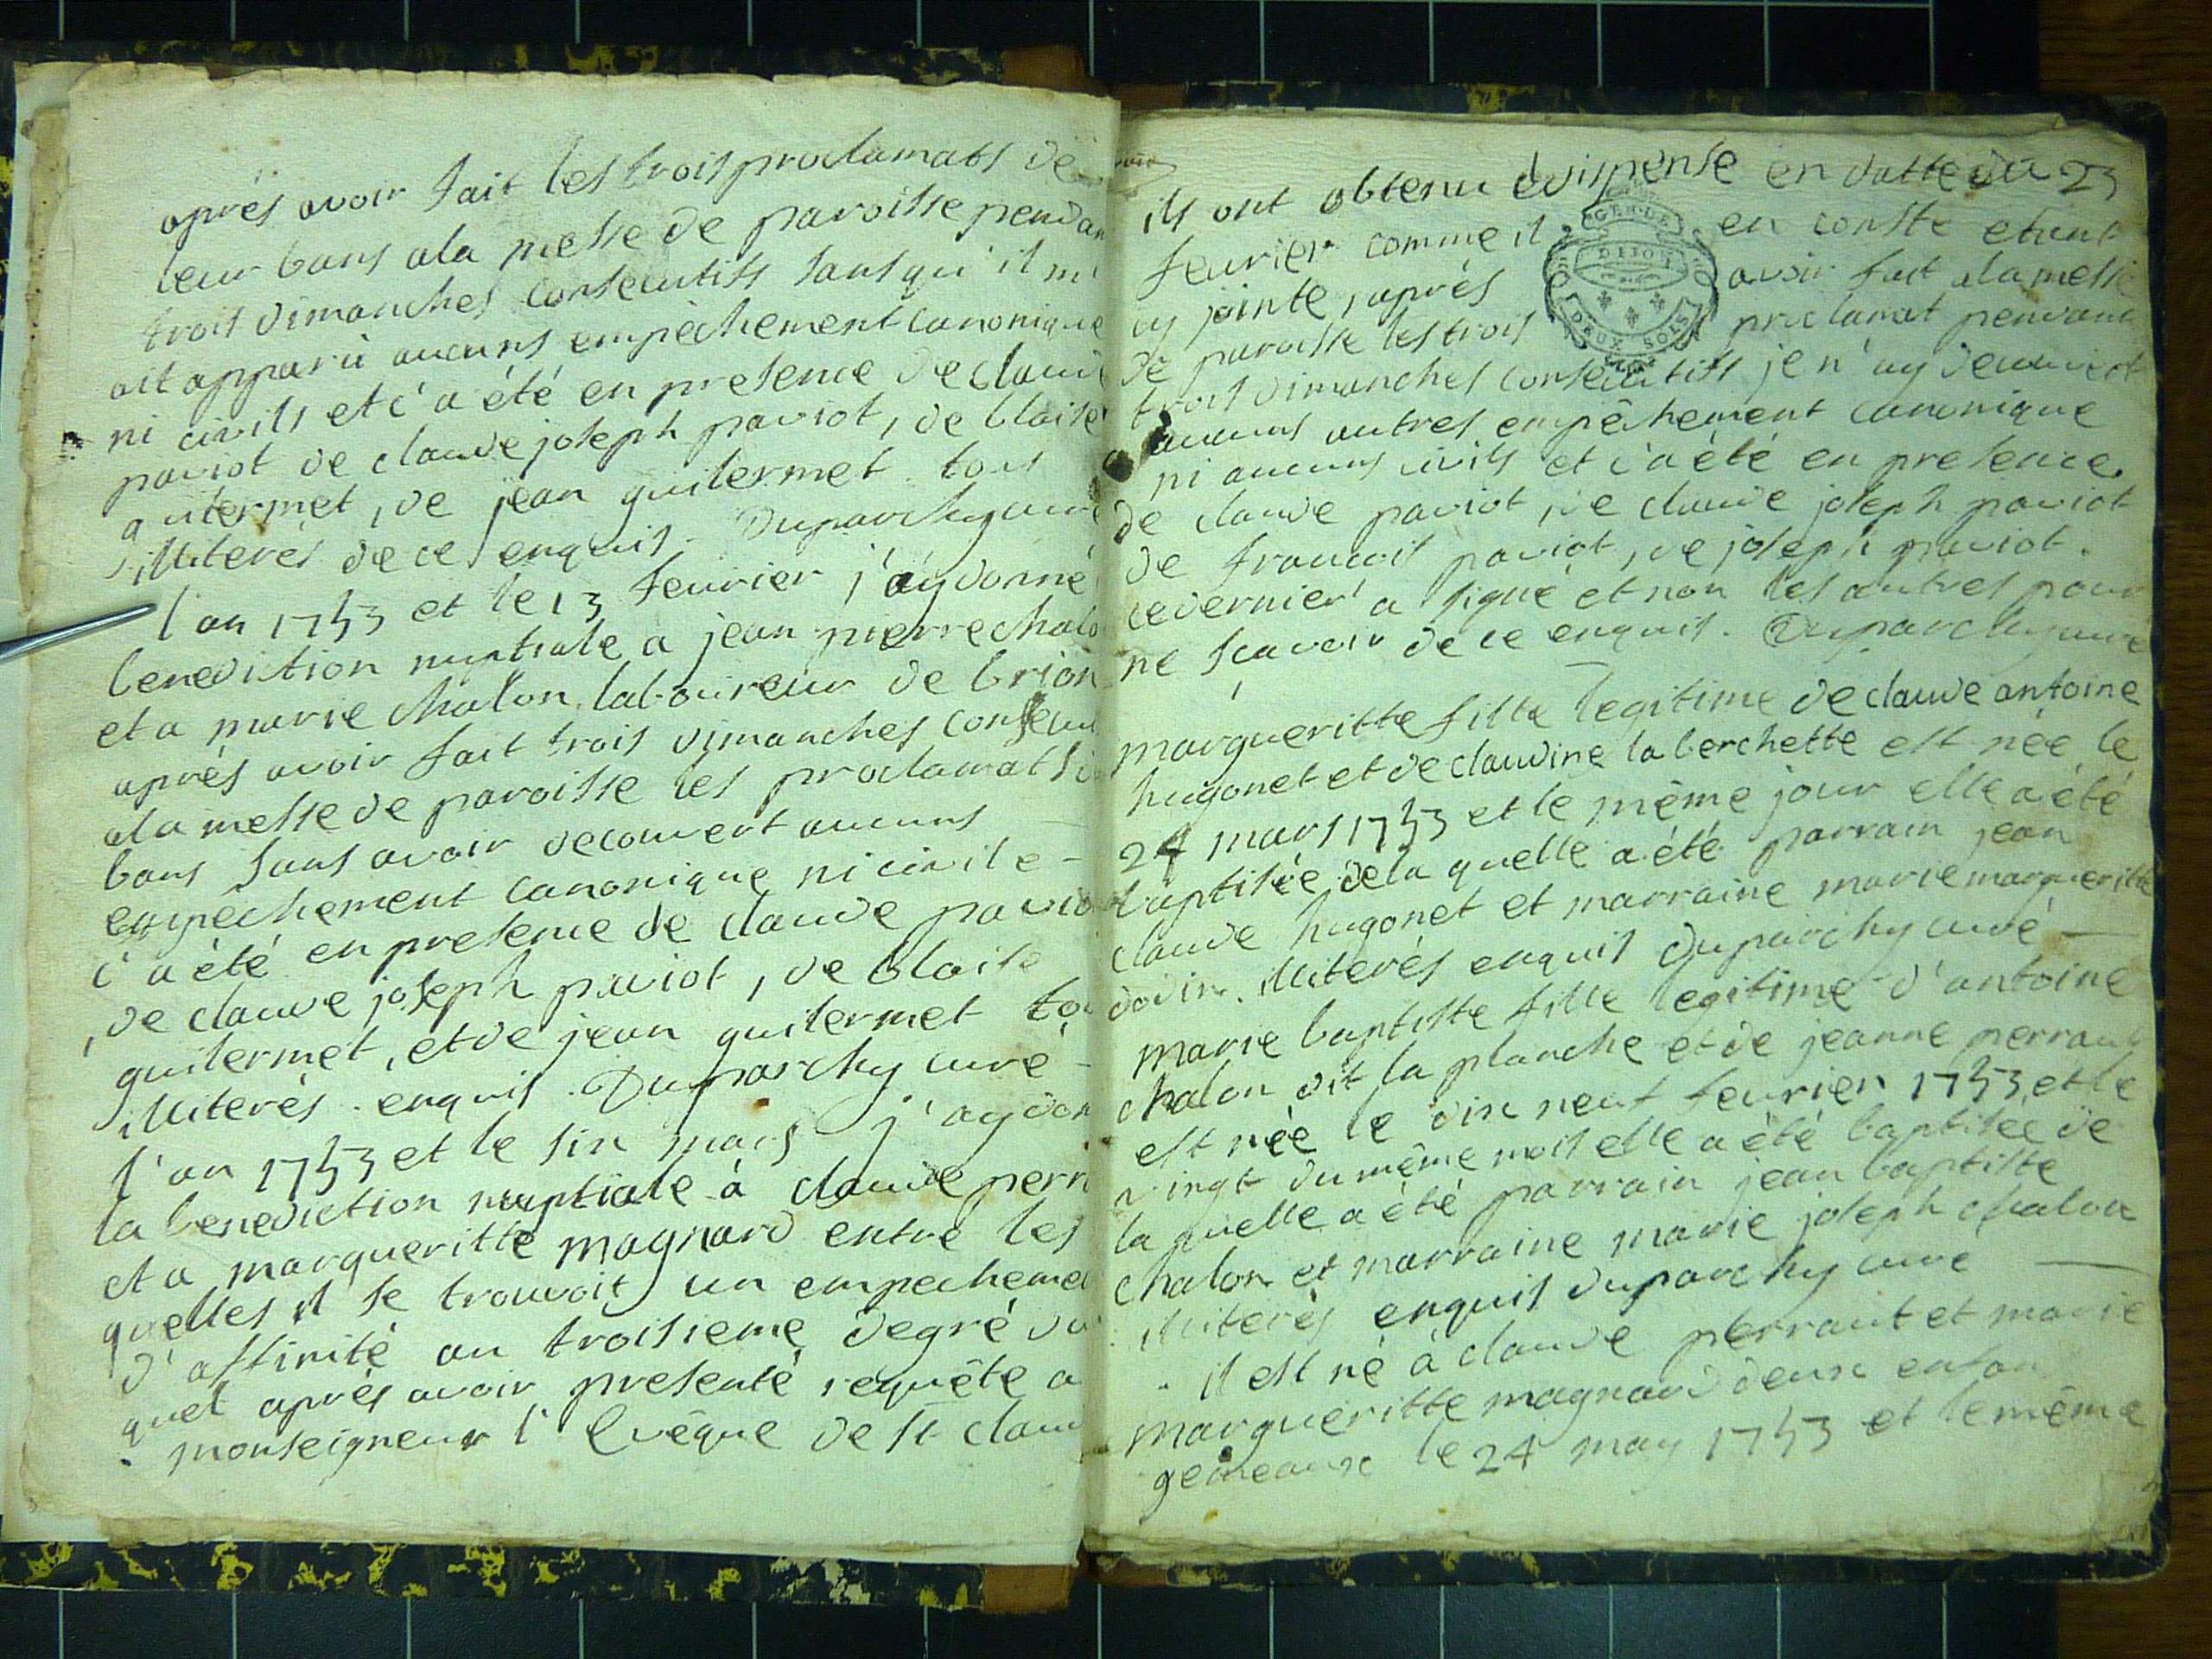 après avoir fait les trois proclamats de
leur bans ala messe de paroisse pendan
trois dimanches consecutifs sans qu'il m'
ait apparu aucuns empêchement canonique
ni civils et c'a été en presence de claude
paviot de claude joseph paviot, de blaise
guilermet, de jean guilermet tous
illiterés de ce enquis. Duparchy curé
l'an 1753 et le 13 fevrier j'ay donné
benediction nuptiale a jean pierre chalo
et a marie chalon laboureur de brion
après avoir fait trois dimanches consecu
ala messe de paroisse les proclamats
bans sans avoir decouvert aucuns
empêchement canonique ni civile -
c'a été en presence de claude pavio
, de claude joseph paviot, de blaise
guilermet, et de jean guilermet tou
illiterés enquis Duparchy curé -
l'an 1753 et le six mars j'ay don
la benediction nuptiale à claude perr
et a margueritte magnard entre les
quelles il se trouvoit un empecheme
d'affinité au troisieme degré du
quel après avoir presenté requête a
monseigneur l'Evêque de st claud
ils ont obtenu dispense en datte du 23
fevrier comme il en conste etant
cy jointe, après avoir fait ala messe
de paroisse les trois proclamat pendant
trois dimanches consecutifs je n'ay decouvert
aucuns autres empêchement canonique
ni aucuns civils et c'a été en presence
de claude paviot, de claude joseph paviot
de francois paviot, de joseph paviot.
ce dernier a signé et non les autres pour
ne scavoir de ce enquis. Duparchy curé
margueritte fille legitime de claude antoine
hugonet et de claudine la berchette est née le
24 mars 1753 et le même jour elle a été
baptisée de la quelle a été parrain jean
claude hugonet et marraine marie margueritte
dodin. illiterés enquis duparchy curé —
marie baptiste fille legitime d'antoine
chalon dit la planche et de jeanne perraut
est née le dix neuf fevrier 1753 et le
vingt du même mois elle a été baptisée de
la quelle a été parrain jean baptiste
chalon et marraine marie joseph chalon
illiterés enquis duparchy curé —
il est né à claude perraut et marie
margueritte magnard deux enfan
gemeaux le 24 may 1753 et le même
GEN. DE
DIJON
DEUX SOLS